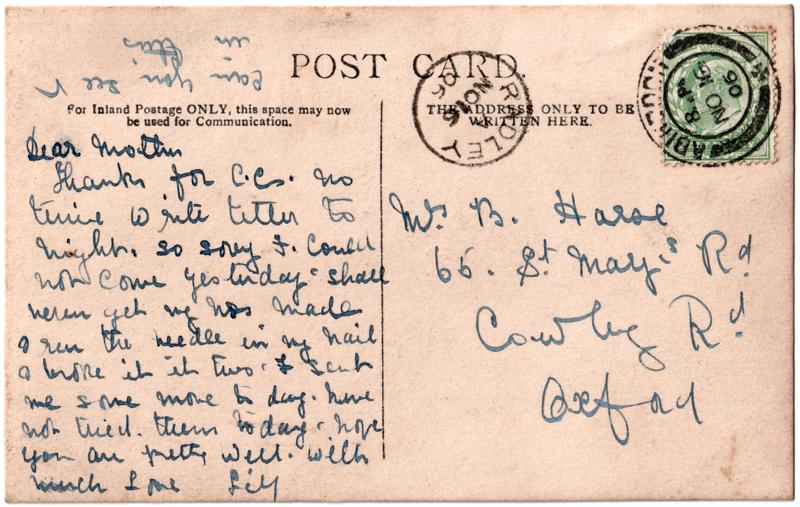 Can you see
in
this
POST CARD.
For Inland Postage ONLY, this space may now
be used for Communication.
THE ADDRESS ONLY TO BE
WRITTEN HERE.
RADLEY
NO 15
06
ABINGDON
8
NO 15
06
Dear Mother
Thanks for C.Cs. no
time to write letter to
night. so sorry I could
not come yesterday. shall
never get my nos made
I ran the needle in my nail
& broke it in two. I sent
me some more to day. have
not tried them to day. hope
you are pretty well. with
much Love Lily
Mrs B.
65. St Mary's Rd
Cowley Rd
Oxford